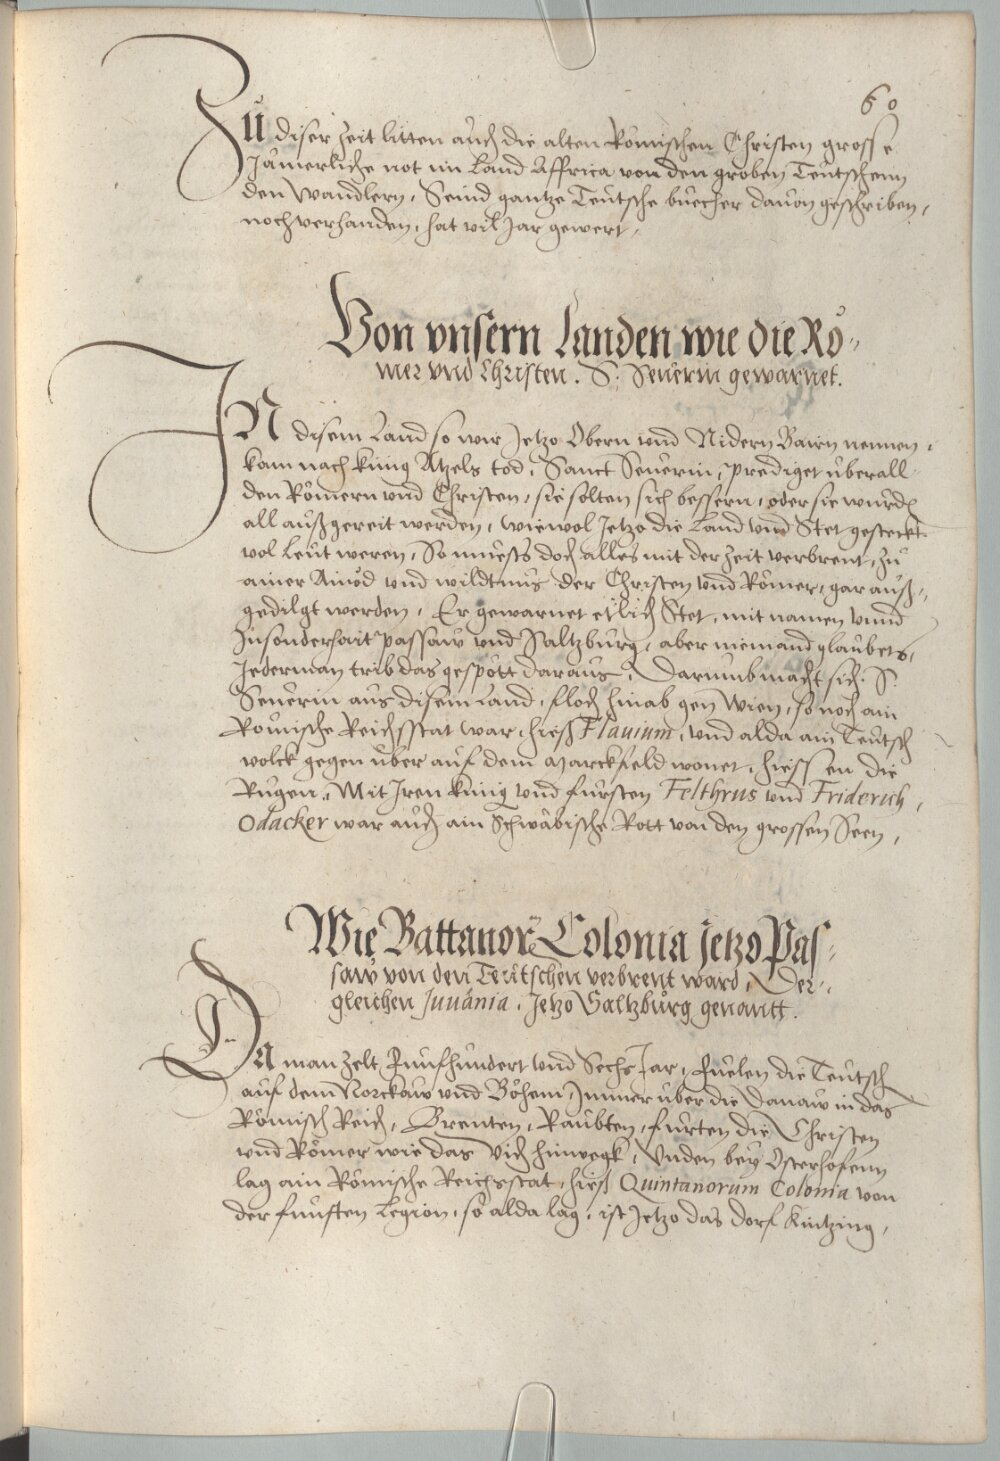 60
Zů diser Zeit litten auch die alten Römischen Christen grosse
Jämerliche not im Land Affrica von den groben Teütschenn
den Wandlern, Seind gantze Teütsche büecher davon geschriben,
noch verhanden, hat vil Jar gewert,
Von vnsern Landen wie die Rö-
mer vnd Christen. S: Seuerin gewarnet.
IN disem Land so wir Jetzo Obern vnd Nidern Bairn nennen,
kam nach künig Atzels tod, Sanct Seuerin, prediget überall
den Römern vnd Christen, sie solten sich bessern, oder sie wurdē
all außgereit werden, wiewol Jetzo die Land vnd Stet gesteckt
vol Leüt weren, So müests doch alles mit der Zeit verbrent, zů
ainer Ainöd vnd wildtnus der Christen vnd Römer, gar auß-
gedilgt werden, Er gewarnet etlich Stet, mit namen vnnd
Insonderhait Passaw vnd Saltzburg, aber niemand glaubets,
Jederman trib das gespött daraus, Darumb macht sich S.
Seuerin aus disem Land, floch hinab gen Wien, so noch ain
Römische Reichsstat war, hieß Flauium, vnd alda ain Teütsch
volck gegen über auf dem Marckfeld wonet, hiessen die
Rugen, Mit Iren künig vnd fürsten Felthrus vnd Friderich,
Odacker war auch ain Schwäbische Rott von den grossen Seen,
Wie Battanor Colonia jetzo Pas-
saw von den Teütschen verbrent ward, Der-
gleichen Juuania, Jetzo Saltzburg genantt.
DA man zelt Fünfhundert vnd Sechs Jar, fielen die Teütsch
auf dem Norckaw vnd Böhem, Immer über die Danaw in das
Römisch Reich, Brenten, Raubten, fürten die Christen
vnd Römer wie das Vich hinwegk, Vnden bey Osterhofenn
lag ain Römische Reichsstat, hieß Quintanorum Colonia von
der fünften Legion, so alda lag, ist Jetzo das dorf Kintzing,